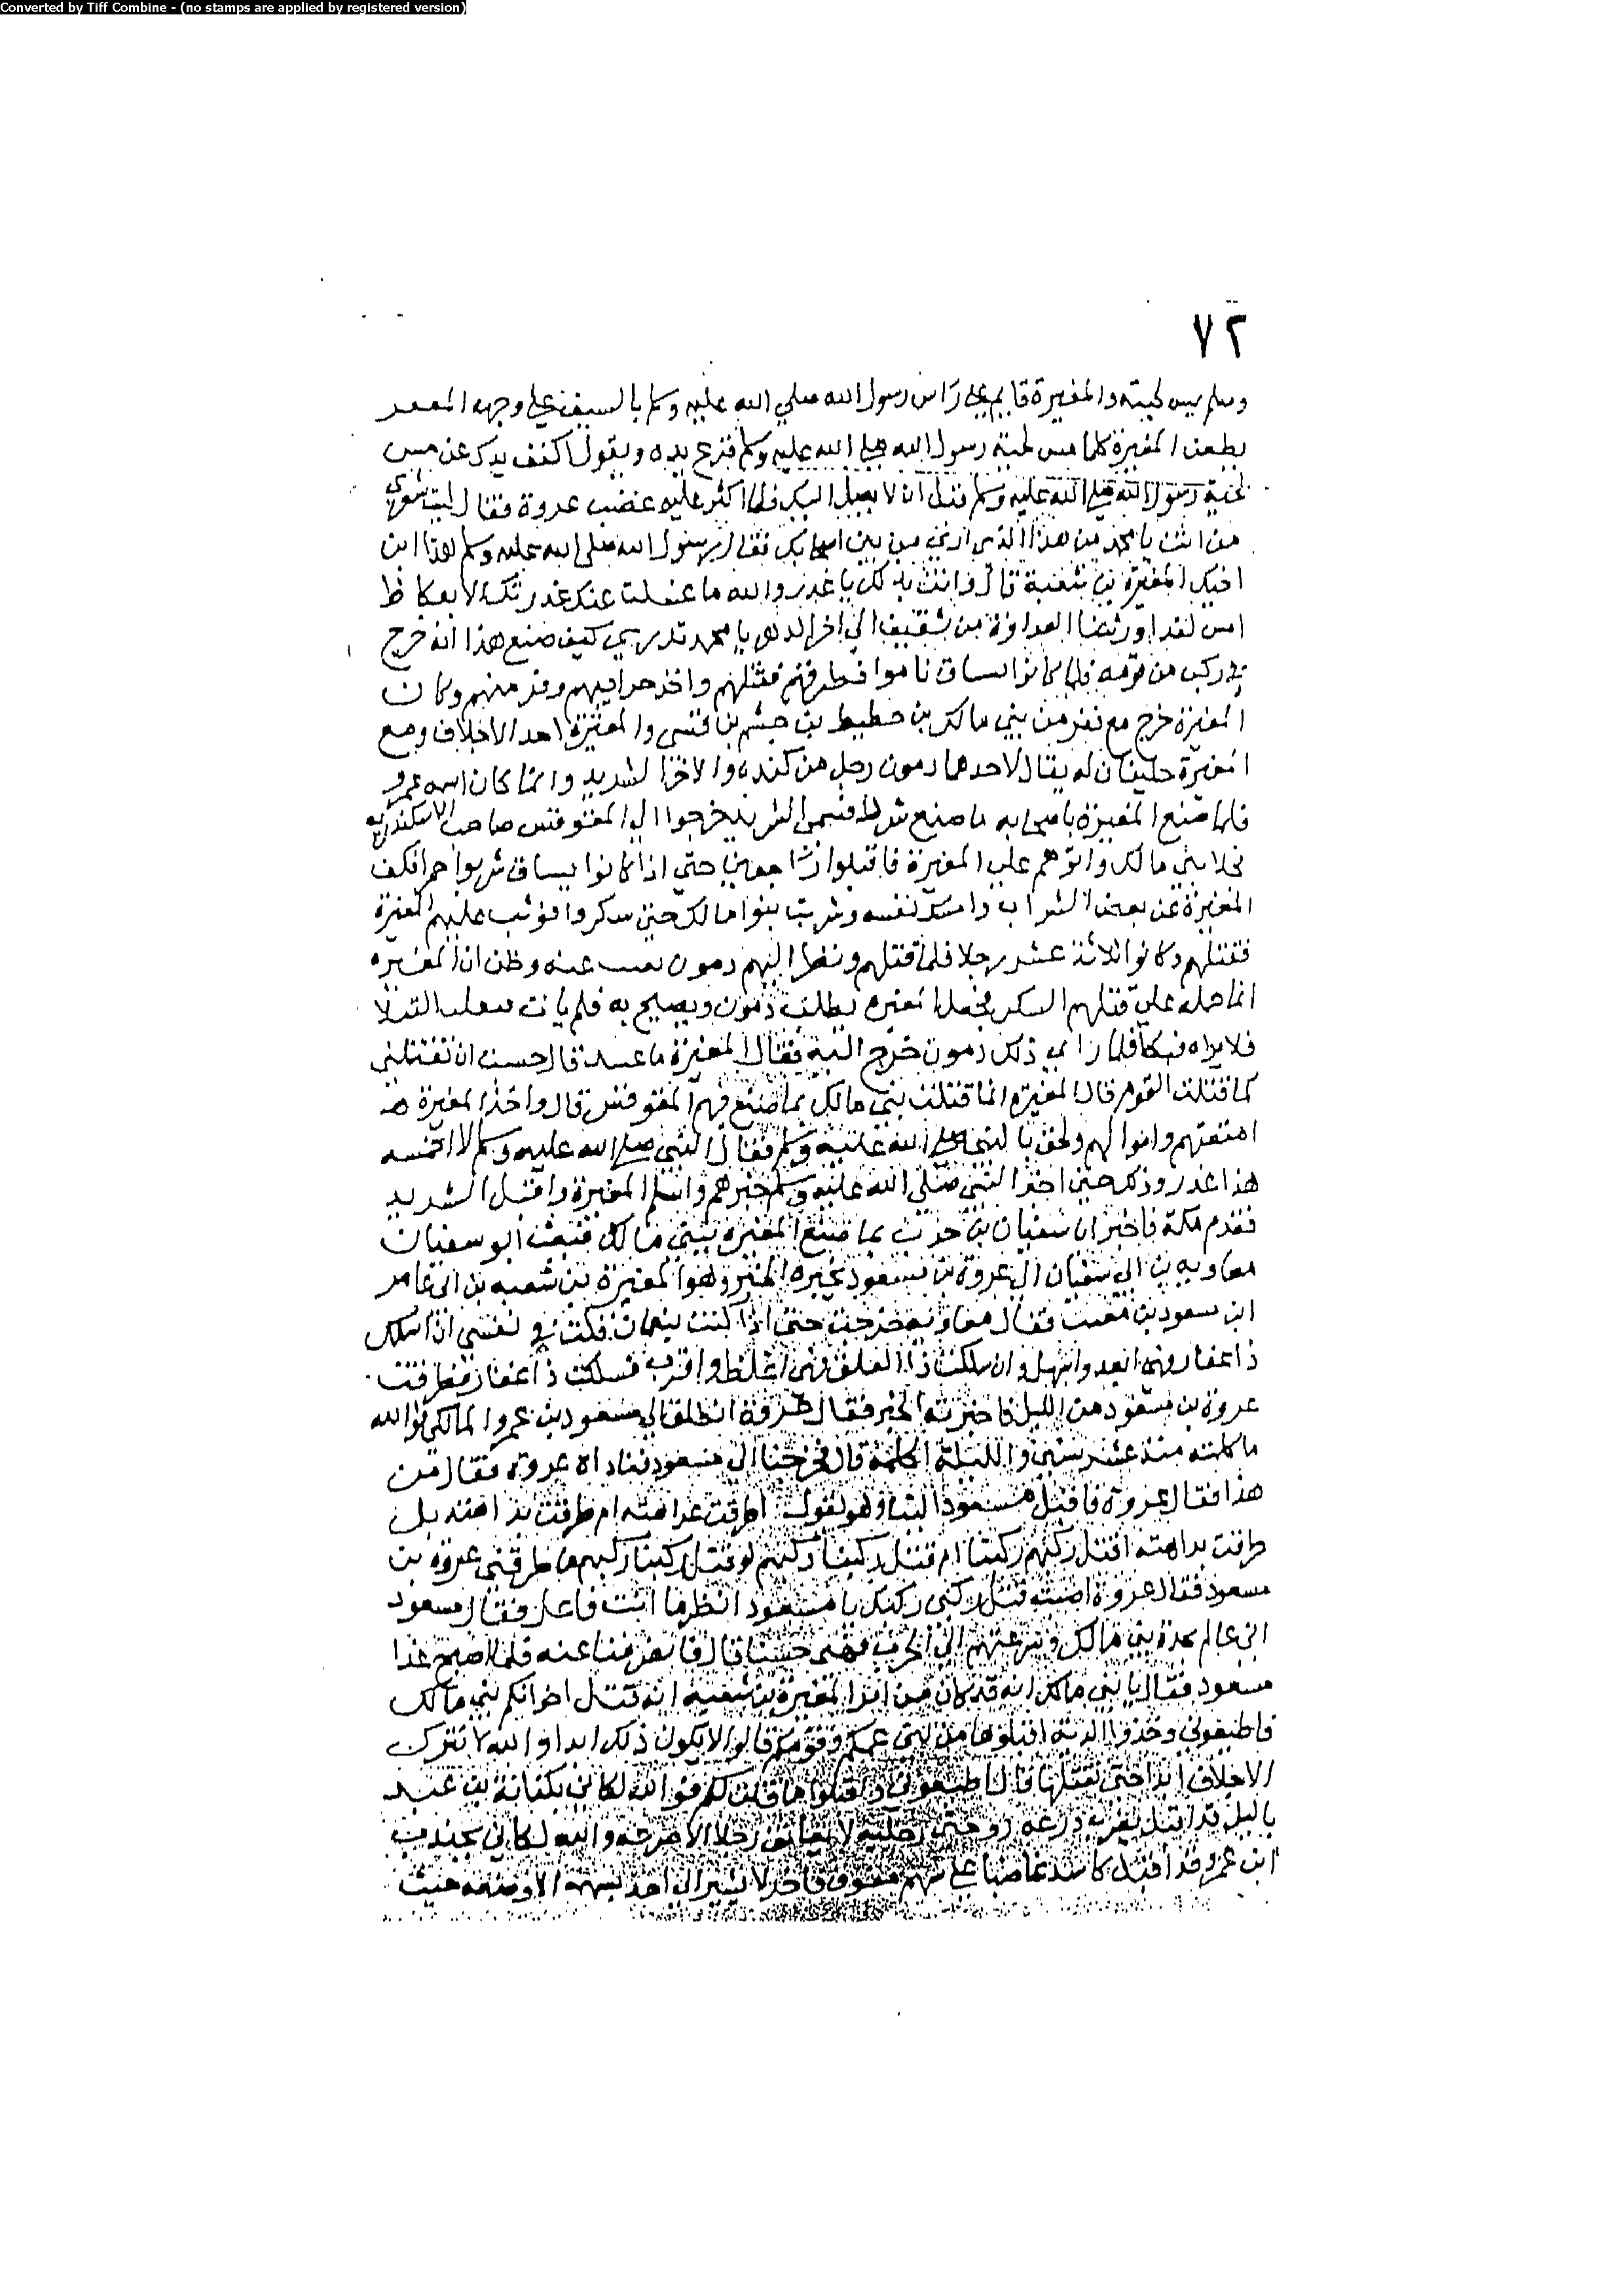 Converted by Tiff Combine - (no stamps are applied by registered version)
٧٢
وسلم يمس لحيته والمغيرة قايم علي راس رسول الله صلي الله عليه وسلم بالسيف علي وجهه المغفر
يطعن المغيرة كلما مس لحية رسول الله صلي الله عليه وسلم قرع يده ويقول اكفف يدك عن مس
لحية رسول الله صلي الله عليه وسلم قبل ان لا يصل اليك فلما اكثر عليه غضب عروة فقال ليت شعري
من انت يا محمد من هذا الذي اري من بين اصحابك فقال رسول الله صلي الله عليه وسلم هذا ابن
اخيك المغيرة بن شعبة قال وانت بذلك يا غدر والله ما غسلت عنك غدرتك الا بعكاظ
امس لقد اورثتنا العداوة من ثقيف الي اخر الدهر يا محمد تدري كيف صنع هذا انه خرج
في ركب من قومه فلما كانوا ناموا فطرقهم فقتلهم واخذ حرايبهم وفر منهم وكان
المغيرة خرج مع نفر من بني مالك بن حطيط بن جشم بن قسي والمغيرة احد الاحلاف ومع
المغيرة حليفان له يقال لاحدهما دمون رجل من كنده والاخر الشريد وانما كان اسمه عمرو
فلما صنع المغيرة باصحابه ما صنع شرد فسمي الشريد خرجوا الي المقوقس صاحب الاسكندريه
بني مالك واثرهم علي المغيرة فاقبلوا راجعين حتي اذا كانوا شربوا خمرا فكف
المغيرة عن بعض الشراب وامسك نفسه وشربت بنوا مالك حتي سكروا فوثب عليهم المغيرة
فقتلهم وكانوا ثلاثة عشر رجلا فلما قتلهم ونظر اليهم دمون عنه وظن ان المغيره
انما حمله علي قتلهم السكر فجعل المغيره يطلب دمون ويصيح به فلم يات القتلا
فلا يراه فبكا فلما راي ذلك دمون خرج اليه فقال المغيرة ما قال خشيت ان تقتلني
كما قتلت القوم قال المغيره انما قتلت بني مالك بما صنع بهم المقوقس قال واخذ المغيرة
امتعتهم واموالهم ولحق بالنبي صلي الله عليه وسلم فقال النبي صلي الله عليه وسلم لا اخمسه
هذا غدر وذلك حين اخبر النبي صلي الله عليه وسلم خبرهم واسلم المغيرة واقبل الشريد
فقدم مكة فاخبر ابا سفيان بن حرب بما صنع المغيرة ببني مالك فبعث ابو سفيان
معاويه بن ابي سفيان الي عروة بن مسعود يخبره الخبر وهو المغيرة بن شعبه بن ابي عامر
ابن مسعود بن معتب فقال معاويه خرجت حتي اذا كنت بنعمان قلت في نفسي ان اسلك
ذا غفار فهي ابعد واسهل وان سلكت ذا العلق فهي اغلظ واقرب فسلكت ذا غفار فطرقت
عروة بن مسعود من الليل فاخبرته الخبر فقال عروة انطلق الي مسعود بن عمرو المالكي فوالله
ما كلمته منذ عشر سنين والليلة اكلمه قال فخرجنا الي مسعود فناداه عروة فقال من
هذا فقال عروة فاقبل مسعود الينا وهو يقول اطرقت عراهيه ام طرقت بداهيه بل
طرقت بداهيه اقتل ركبهم ركبنا ام قتل ركبنا ركبهم لو قتل ركبنا ركبهم ما طرقني عروة بن
مسعود فقال عروة اصبت قتل ركبي ركبك يا مسعود انظر ما انت فاعل فقال مسعود
اني عالم بحدة بني مالك وسرعتهم الي الحرب فهبني صمتا قال فانصرفنا عنه فلما اصبح غدا
مسعود فقال يا بني مالك انه قد كان من امر المغيرة بن شعبه انه قتل اخوانكم بني مالك
فاطيعوني وخذوا الدية اقبلوها من بني عمكم وقومكم قالوا لا يكون ذلك ابدا والله لا تترك
الاحلاف ابدا حتي تقتلها قال اطيعوني واقبلوا ما قلت لكم فوالله لكاني بكنانة بن عبد
ياليل قد اقبل يضرب درعه روحتي رجليه لا يعانق رجلا الا صرعه والله لكاني بجندب
ابن عمرو قد اقبل كالسيد عاضبا علي سهم مفوق باخر لا يشير الي احد بسهمه الا وضعه حيث